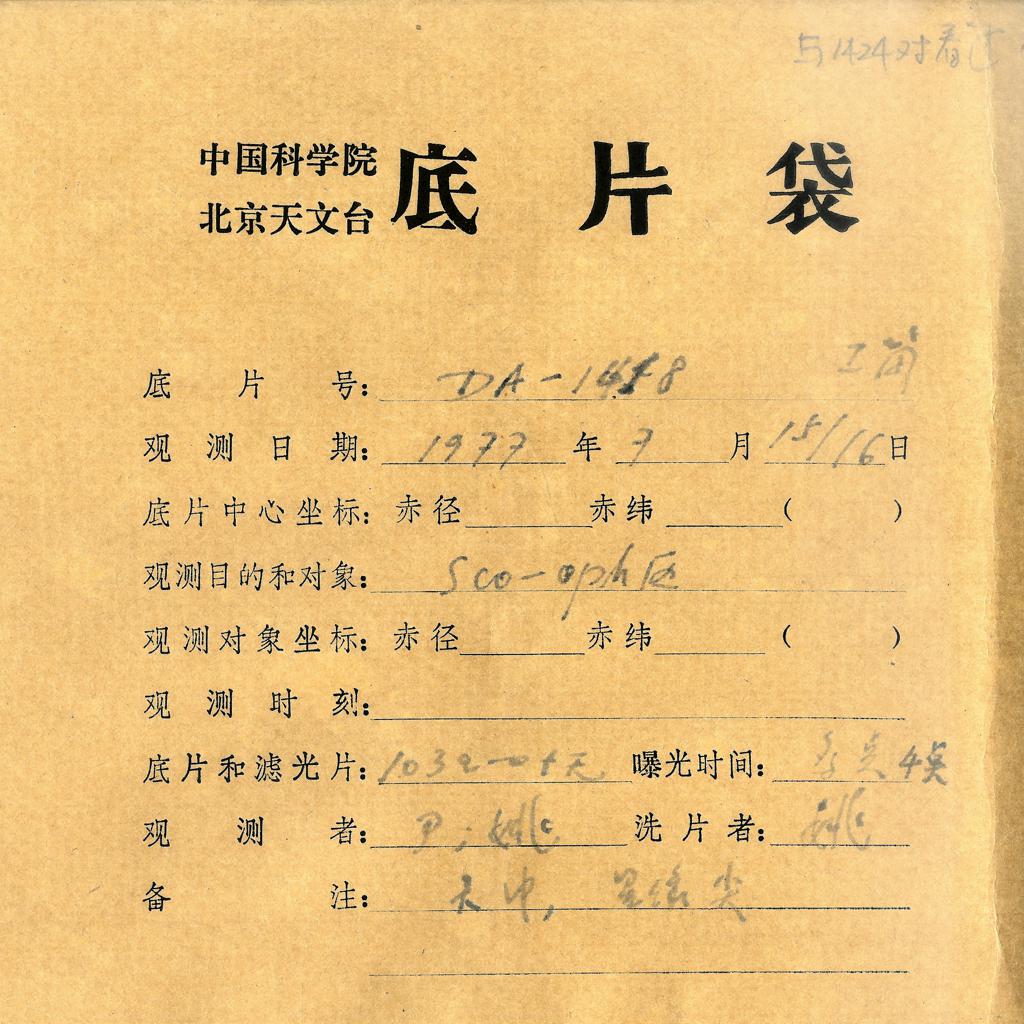 与1424对看过
中国科学院
北京天文台
底片袋
底片号: DA-1418
观测日期: 1977年7月15/16日
底片中心坐标: 赤径 赤纬 ( )
观测目的和对象: Sco-oph区
观测对象坐标: 赤径 赤纬 ( )
观测时刻:
底片和滤光片: 103a-o+无 曝光时间: 4点
观测者: 尹;姚 洗片者: 姚
备注: 天中, 星像尖